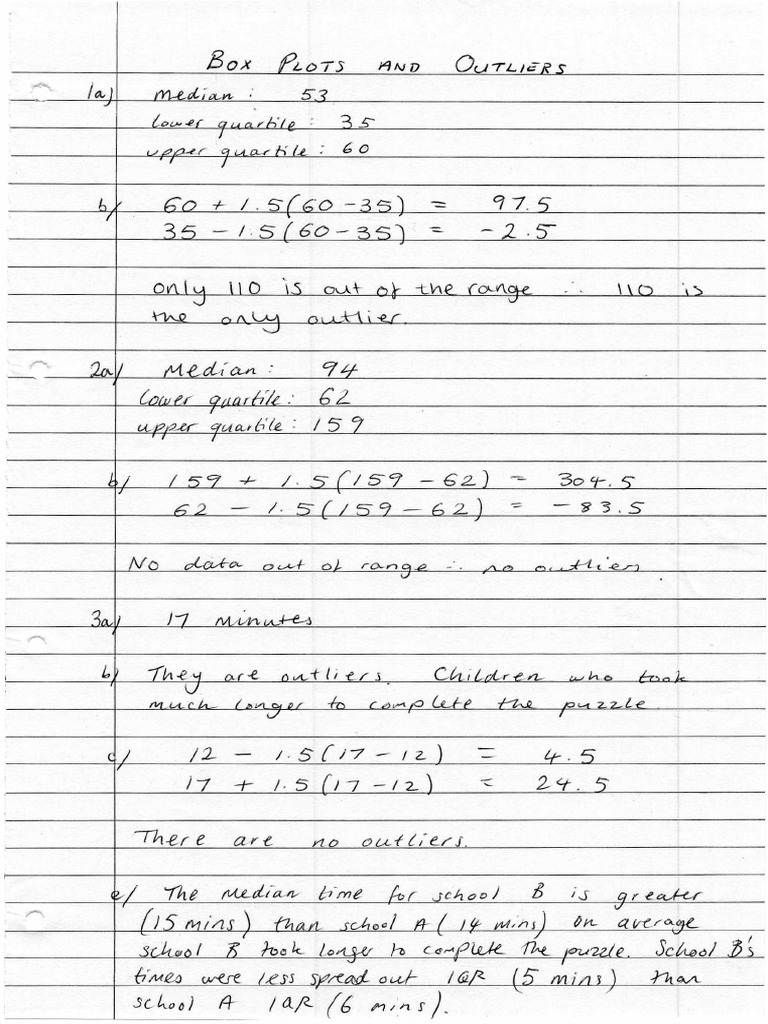 BOX PLOTS AND OUTLIERS
1a) Median: 53
lower quartile: 35
upper quartile: 60
b/ 60 + 1.5(60-35) = 97.5
35 - 1.5(60-35) = -2.5
only 110 is out of the range ∴ 110 is
the only outlier.
2a/ Median: 94
lower quartile: 62
upper quartile: 159
b/ 159 + 1.5(159 - 62) = 304.5
62 - 1.5(159 - 62) = -83.5
No data out of range ∴ no outliers.
3a/ 17 minutes
b/ They are outliers. Children who took
much longer to complete the puzzle
c/ 12 - 1.5(17-12) = 4.5
17 + 1.5(17-12) = 24.5
There are no outliers.
e/ The Median time for school B is greater
(15 mins) than school A (14 mins) on average
school B took longer to complete the puzzle. School B's
times were less spread out IQR (5 mins) than
school A IQR (6 mins).